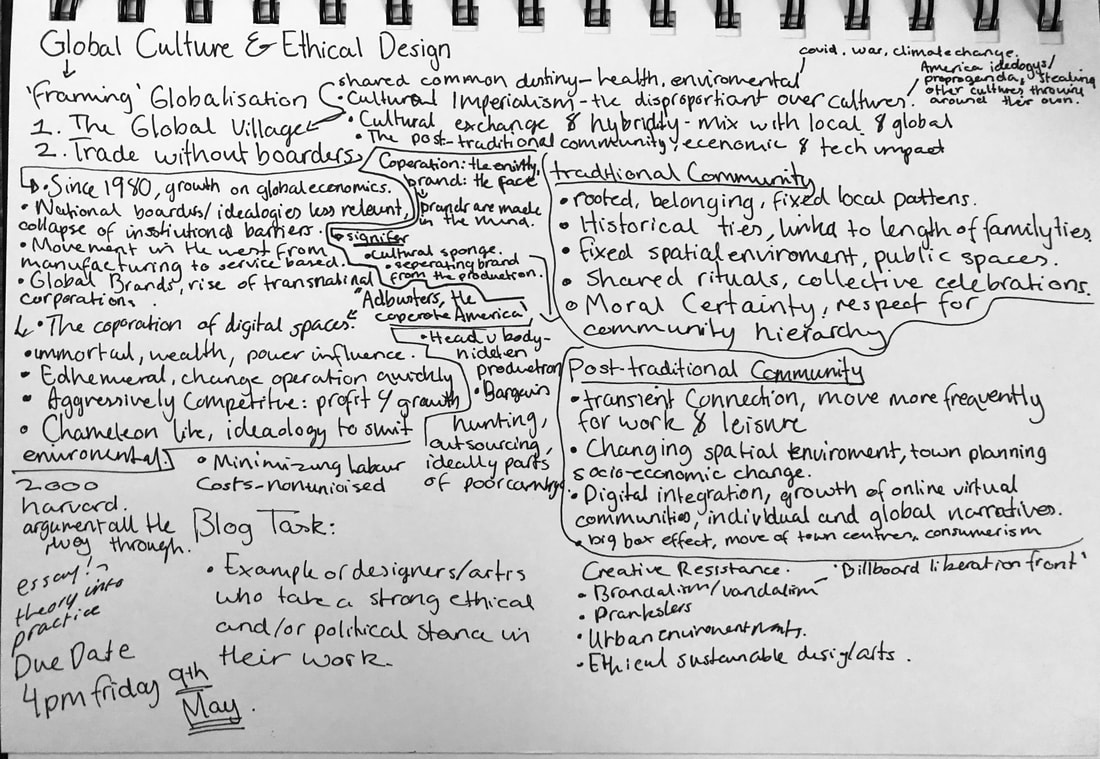 Global Culture & Ethical Design
covid. war, climate change.
America ideology/
propoganda, stealing
other cultures throwing
around their own.
'Framing' Globalisation
shared common destiny - health, enviromental
• Cultural Imperialism - the disproportiant over cultures.
1. The Global Village
• Cultural exchange & hybridity - mix with local & global
• The post-traditional community, economic & tech impact
2. Trade without boarders
• Since 1980, growth on global economics.
• National boarders/idealogies less relevent,
collapse of institutional barriers.
• Movement in the west from
manufacturing to service based.
• Global Brands, rise of transnatinal
corporations.
• The coporation of digital spaces.
• immortal, wealth, power influence.
• Edhemeral, change operation quickly
• Aggressively Competitve: profit & growth
• Chameleon like, ideaology to smit
enviromental.
Coperation: the enitity,
brand: the face
brands are made
in the mind.
signifer
• Cultural sponge.
• seperating brand
from the production.
"Adbusters, the
coperate America"
• Head v body -
hidden
production
• Bargains
hunting,
outsourcing,
ideally parts
of poor country
• Minimizing labour
Costs - nonunioised
traditional Community
• rooted, belonging, fixed local pattens.
• Historical ties, linked to length of family ties.
• fixed spatial enviroment, public spaces.
• Shared rituals, collective celebrations.
• Moral Certainty, respect for
community hierarchy
Post-traditional Community
• transient Connection, move more frequently
for work & leisure
• Changing spatial enviroment, town planning
socio-economic change.
• Digital integration, growth of online virtual
communities, individual and global narratives.
• big box effect, move of town centres, consumerism
Creative Resistance. - 'Billboard liberation front'
• Brandalism/vandalism
• Pranksters
• Urban enviroment
• Ethical sustainable desig/arts.
2000
harvard.
argument all the
way through.
essay!
theory into
practice
Due Date
4pm friday 9th
May.
Blog Task:
• Example of designers/artrs
who take a strong ethical
and/or political stance in
their work.